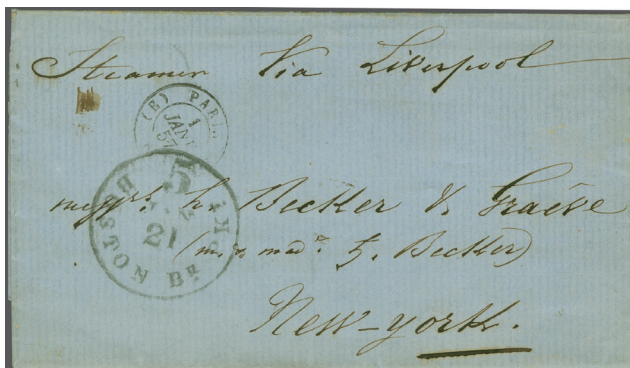 Steamer Via Liverpool
(E) PARIS
1
JANV
57
5
BOSTON BR. PKT
21
messrs. h. Becker & Graeve
(m. n mad. h. Becker)
New-york.